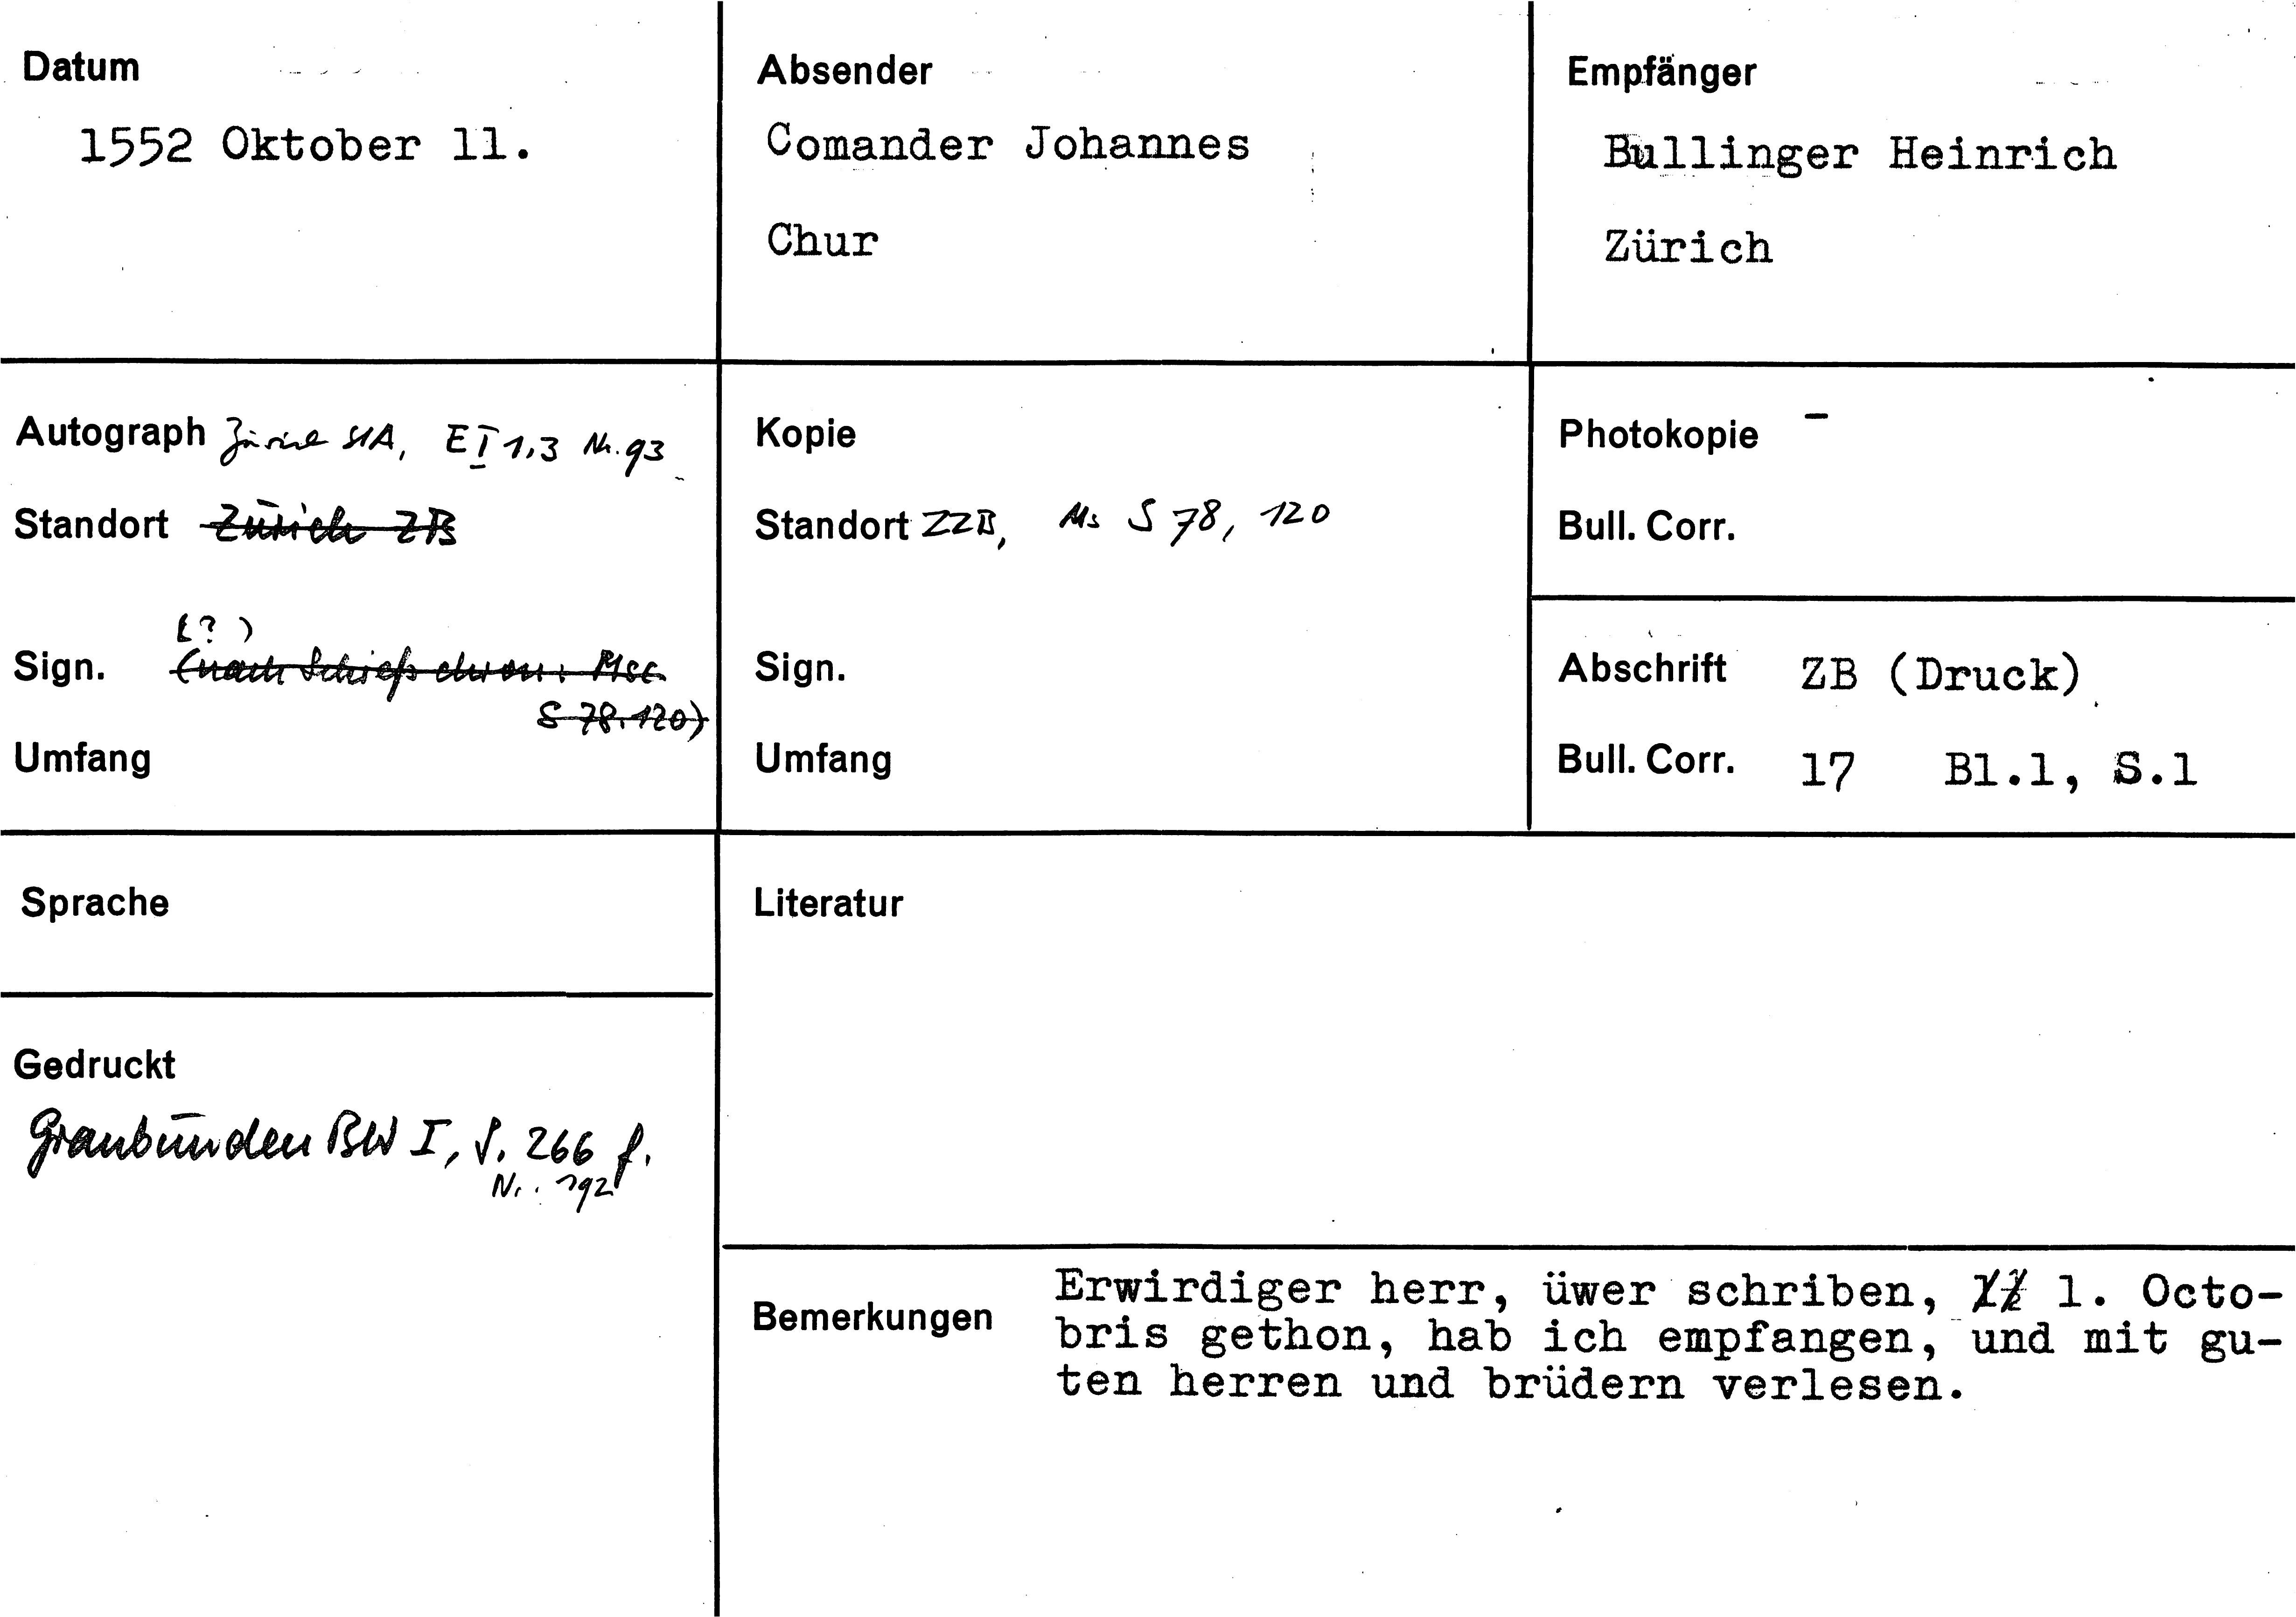 Datum
1552 Oktober 11.
Absender
Comander Johannes
Chur
Empfänger
Bullinger Heinrich
Zürich
Autograph Zürich StA, E I 1,3 Nr. 93
Standort Zürich ZB
(?)
Sign. (nach Schieß chron: Msc.
S 78.120)
Umfang
Kopie
Standort ZZB, Ms S 78, 120
Sign.
Umfang
Photokopie –
Bull. Corr.
Abschrift ZB (Druck)
Bull. Corr. 17 Bl.1, S.1
Sprache
Gedruckt
Graubünden BW I, S. 266 f.
Nr. 192
Literatur
Bemerkungen
Erwirdiger herr, üwer schriben, 1. Octo-
bris gethon, hab ich empfangen, und mit gu-
ten herren und brüdern verlesen.